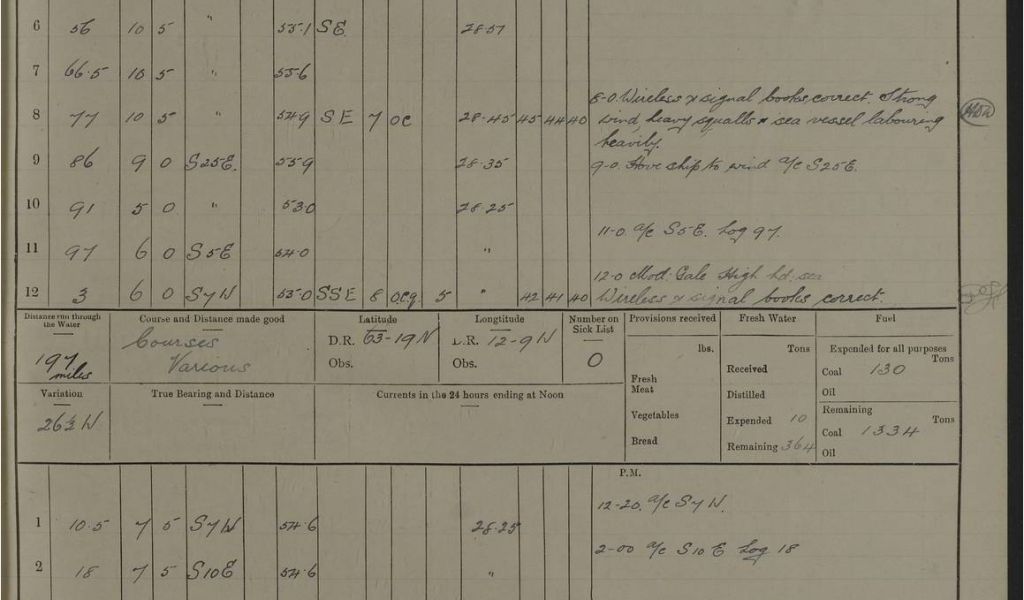 6 56 10 5 " 55.1 SE 28.51
7 66.5 10 5 " 55.6
8-0. Wireless & signal books correct. Strong
8 77 10 5 " 54.9 SE 7 oc 28.45 45 44 40 wind, heavy squalls & sea vessel labouring
heavily.
9 86 9 0 S25E. 55.9 28.35 9-0. Hove ship to wind a/c S25E.
10 91 5 0 " 53.0 28.25
11-0. a/c S5E. Log 97.
11 97 6 0 S5E 54.0 "
12-0 Mod: Gale High hd: sea
12 3 6 0 SyW 55.0 SSE 8 ocg. 5 " 42 41 40 Wireless & signal books correct.
Distance run through the Water Course and Distance made good Latitude Longtitude Number on Sick List Provisions received Fresh Water Fuel
197 miles Courses Various D.R. 63-19N D.R. 12-9W 0 lbs. Tons Expended for all purposes
Obs. Obs. Received Coal 130 Tons
Fresh Meat Distilled Oil
Variation True Bearing and Distance Currents in the 24 hours ending at Noon Remaining
26½ W Vegetables Expended 10 Coal 1334 Tons
Bread Remaining 364 Oil
P.M.
12-20. a/c SyW.
1 10.5 7 5 SyW 54.6 28.25
2-00 a/c S10E Log 18
2 18 7 5 S10E 54.6 "